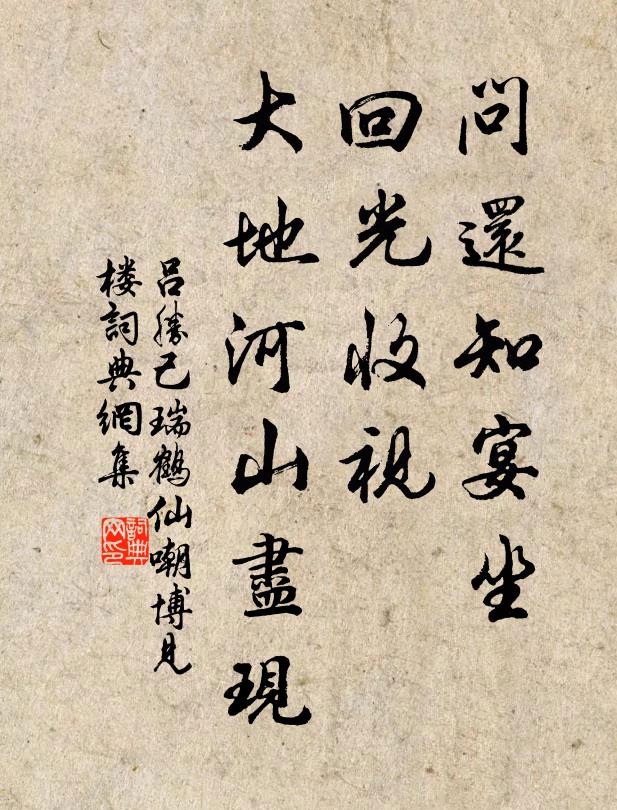 問還知宴坐
回光收視
大地河山盡現
吕勝己瑞鶴仙嘲博見
楼詞典網集
詞典
网印